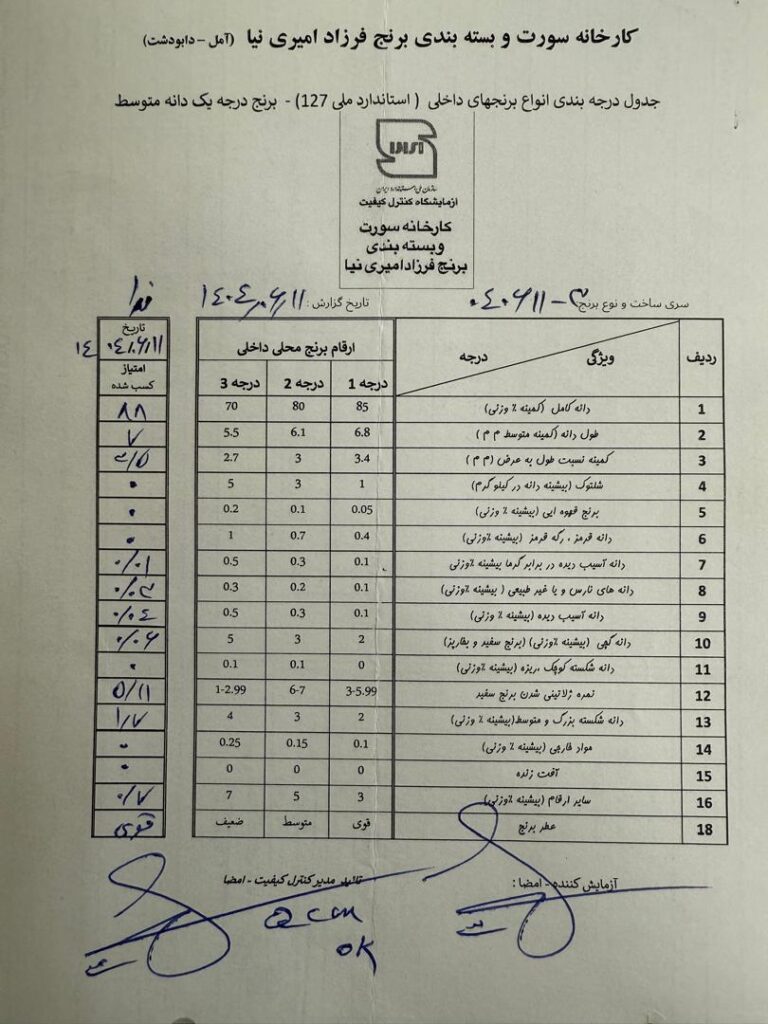 کارخانه سورت و بسته بندی برنج فرزاد امیری نیا (آمل - دابودشت)
جدول درجه بندی انواع برنجهای داخلی ( استاندارد ملی 127) - برنج درجه یک دانه متوسط
آزمایشگاه کنترل کیفیت
کارخانه سورت
و بسته بندی
برنج فرزاد امیری نیا
سری ساخت و نوع برنج: ۰۴۰۶۱۱-۳ تاریخ گزارش: ۱۴۰۴/۰۶/۱۱
ردیف ویژگی درجه ارقام برنج محلی داخلی تاریخ ۱۴۰۴/۰۶/۱۱
درجه 1 درجه 2 درجه 3 امتیاز کسب شده
1 دانه کامل (کمینه ٪ وزنی) 85 80 70 ۸۸
2 طول دانه (کمینه متوسط م م) 6.8 6.1 5.5 ۷
3 کمینه نسبت طول به عرض (م م) 3.4 3 2.7 ۳/۵
4 شلتوک (بیشینه دانه در کیلو گرم) 1 3 5 ۰
5 برنج قهوه ایی (بیشینه ٪ وزنی) 0.05 0.1 0.2 ۰
6 دانه قرمز ، رگه قرمز (بیشینه ٪وزنی) 0.4 0.7 1 ۰
7 دانه آسیب دیده در برابر گرما بیشینه ٪وزنی) 0.1 0.3 0.5 ۰/۰۱
8 دانه های نارس و یا غیر طبیعی ( بیشینه ٪وزنی) 0.1 0.2 0.3 ۰/۰۳
9 دانه آسیب دیده (بیشینه ٪ وزنی) 0.1 0.3 0.5 ۰/۰۴
10 دانه گچی (بیشینه ٪وزنی) (برنج سفید و بخارپز) 2 3 5 ۰/۰۶
11 دانه شکسته کوچک ،ریزه (بیشینه ٪وزنی) 0 0.1 0.1 ۰
12 نمره ژلاتینی شدن برنج سفید 3-5.99 6-7 1-2.99 ۵/۱۱
13 دانه شکسته بزرگ و متوسط(بیشینه ٪ وزنی) 2 3 4 ۱/۷
14 مواد خارجی (بیشینه ٪ وزنی) 0.1 0.15 0.25 ۰
15 آفت زنده 0 0 0 ۰
16 سایر ارقام (بیشینه ٪وزنی) 3 5 7 ۰/۷
18 عطر برنج قوی متوسط ضعیف قوی
آزمایش کننده - امضا : تائید مدیر کنترل کیفیت - امضا
ok